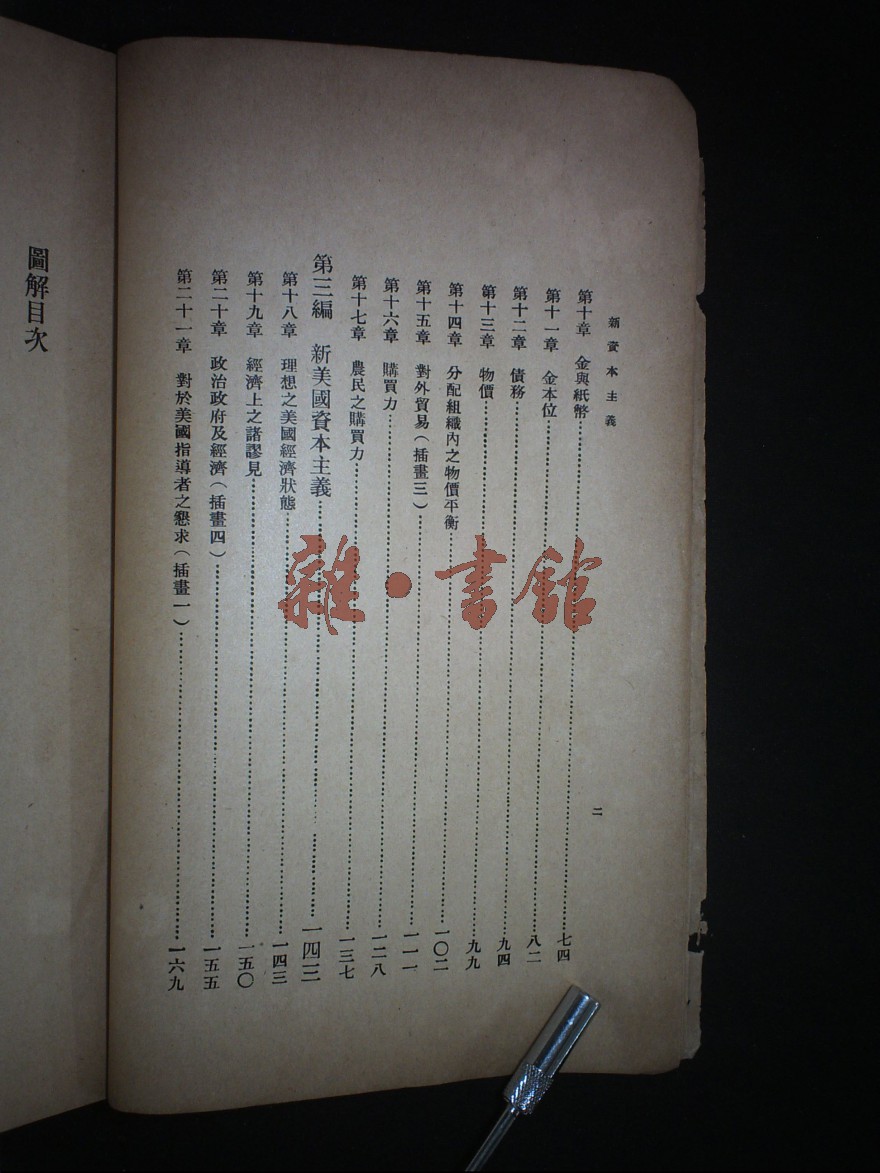 新資本主義
二
第十章 金與紙幣……七四
第十一章 金本位……八二
第十二章 債務……九四
第十三章 物價……九九
第十四章 分配組織內之物價平衡……一〇二
第十五章 對外貿易（插畫三）……一一一
第十六章 購買力……一二八
第十七章 農民之購買力……一三七
第三編 新美國資本主義……一四三
第十八章 理想之美國經濟狀態……一四三
第十九章 經濟上之諸謬見……一五〇
第二十章 政治政府及經濟（插畫四）……一五五
第二十一章 對於美國指導者之懇求（插畫一）……一六九
圖解目次
雜·書館